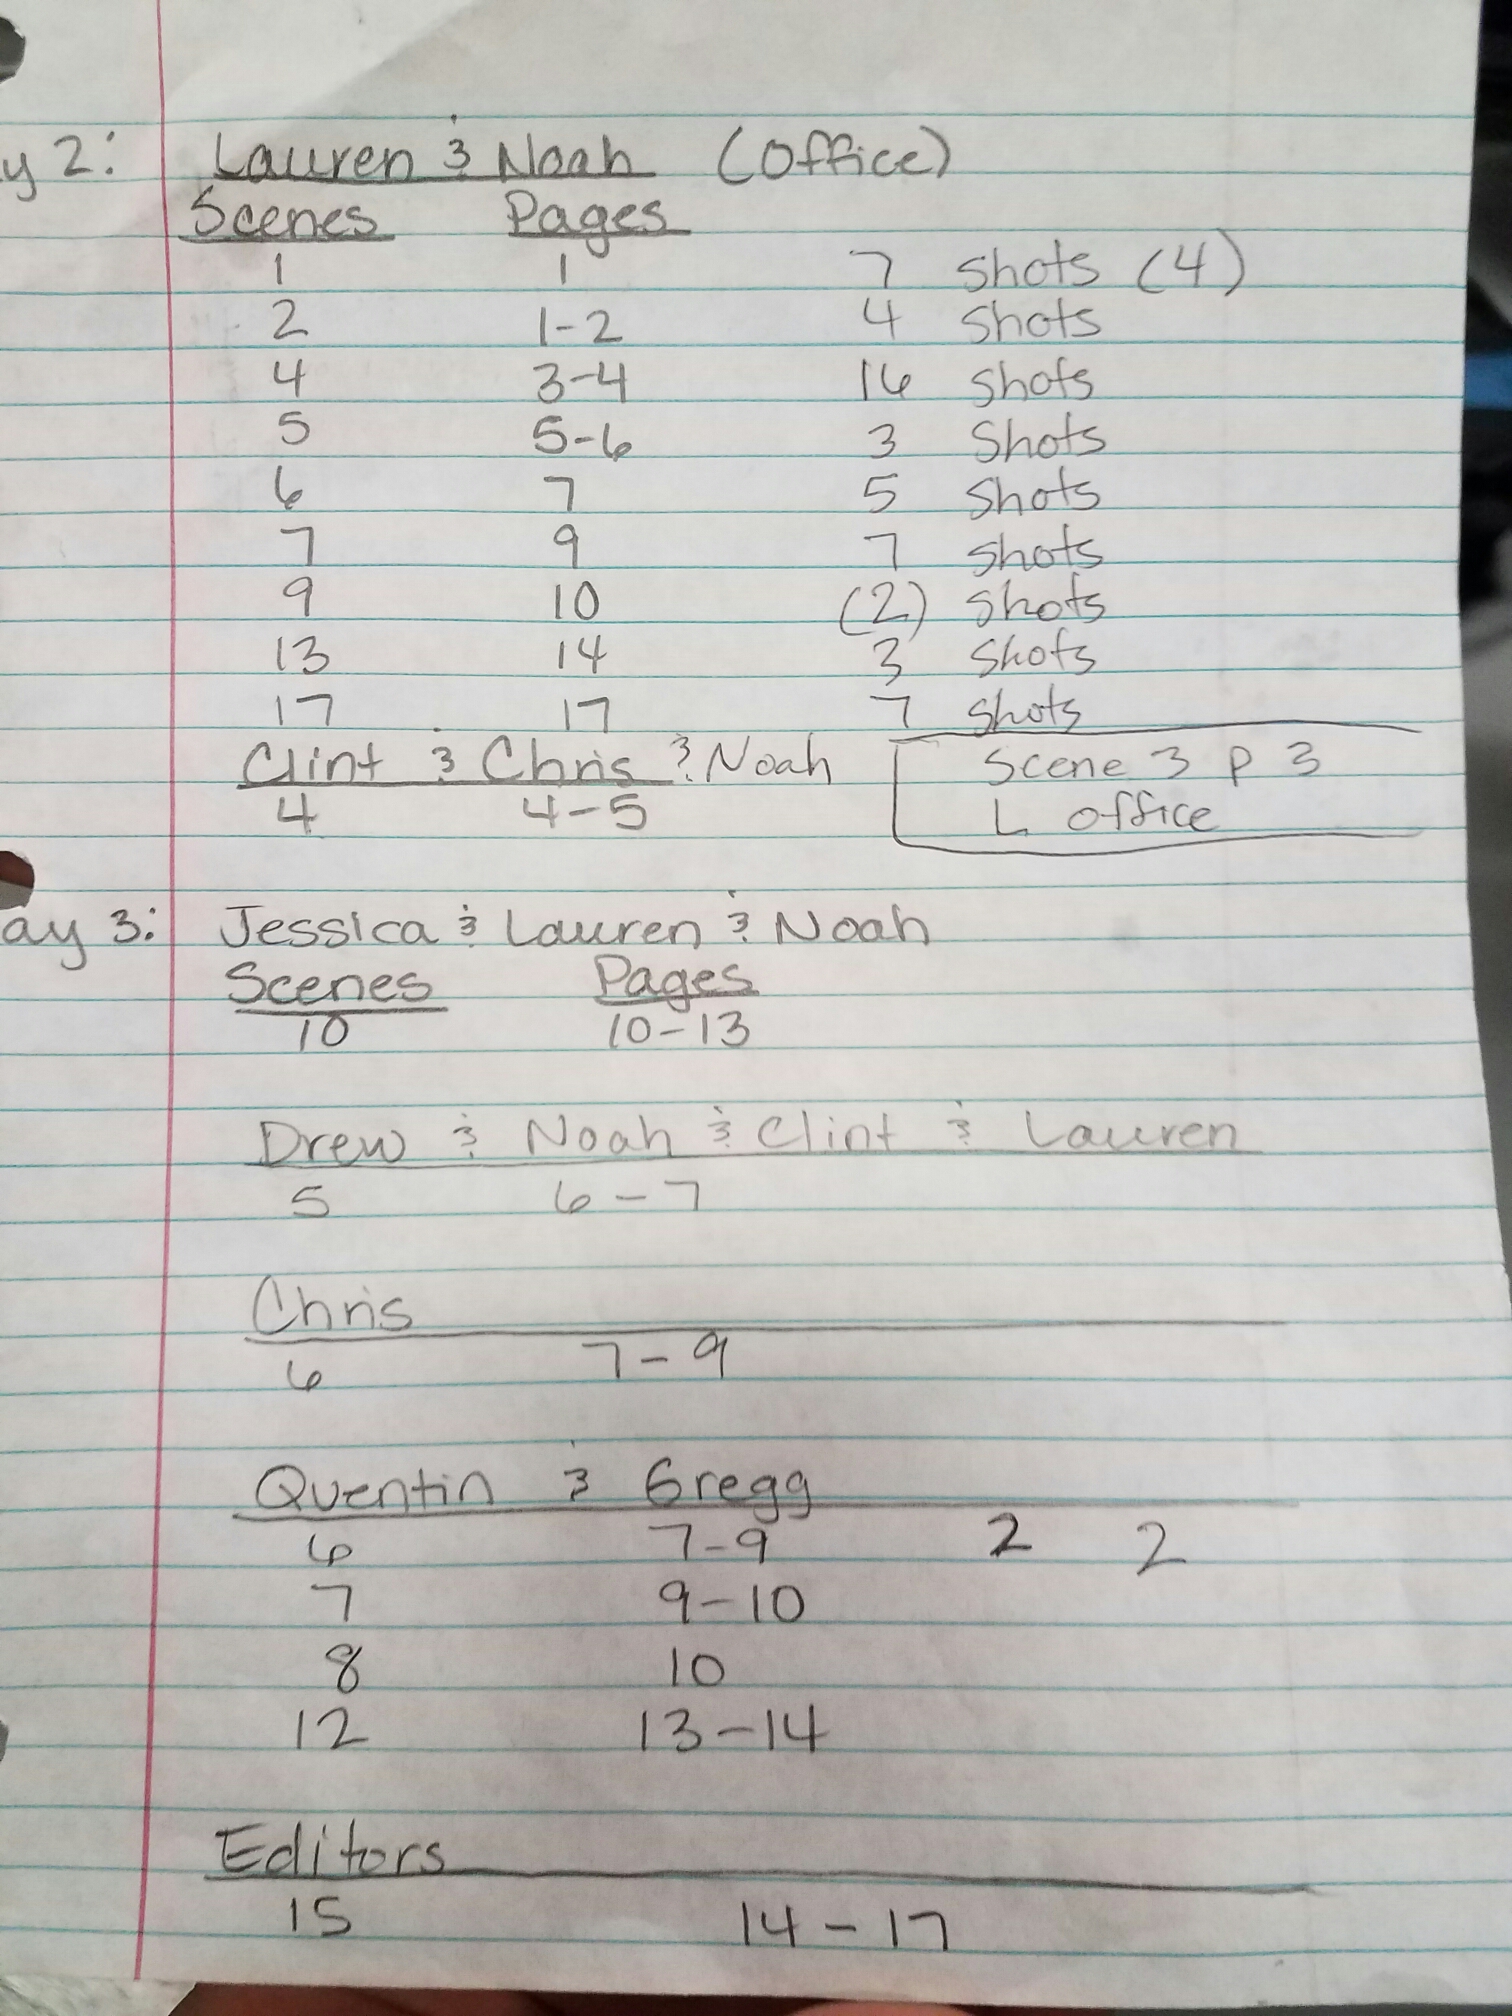 y 2: Lauren & Noah (Office)
Scenes Pages
1 1 7 shots (4)
2 1-2 4 shots
4 3-4 16 shots
5 5-6 3 Shots
6 7 5 shots
7 9 7 shots
9 10 (2) shots
13 14 3 shots
17 17 7 shots
Clint & Chris & Noah Scene 3 p 3
4 4-5 L office
ay 3: Jessica & Lauren & Noah
Scenes Pages
10 10-13
Drew & Noah & Clint & Lauren
5 6-7
Chris
6 7-9
Quentin & Gregg
6 7-9 2 2
7 9-10
8 10
12 13-14
Editors
15 14-17